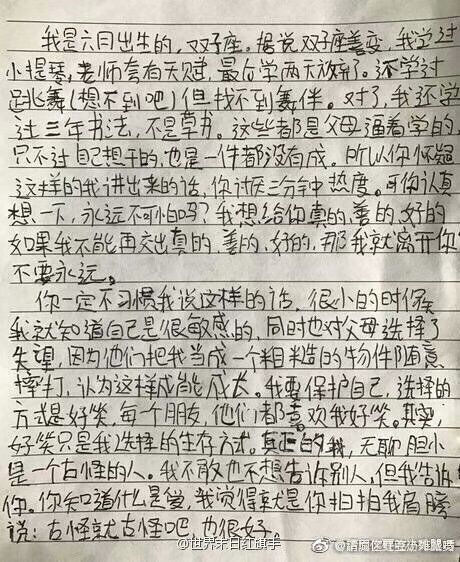 我是六月出生的，双子座。据说双子座善变，我学过
小提琴，老师夸有天赋，最后学两天放弃了。还学过
跳舞（想不到吧）但找不到舞伴。对了，我还学
过三年书法，不是草书。这些都是父母逼着学的，
只不过自己想干的，也是一件都没有成。所以你怀疑
这样的我讲出来的话，你讨厌三分钟热度。可你认真
想一下，永远不可怕吗？我想给你真的、善的、好的
如果我不能再交出真的、善的、好的，那我就离开你
不要永远。
你一定不习惯我说这样的话，很小的时候
我就知道自己是很敏感的，同时也对父母选择了
失望，因为他们把我当成一个粗糙的物件随意
摔打，认为这样成能成长。我要保护自己，选择的
方式是好笑，每一个朋友，他们都喜欢我好笑。其实，
好笑只是我选择的生存方式。真正的我，无聊胆小
是一个古怪的人。我不敢也不想告诉别人，但我告诉
你。你知道什么是爱，我觉得就是你拍拍我肩膀
说：古怪就古怪吧 也很好。
@世界末日红旗手